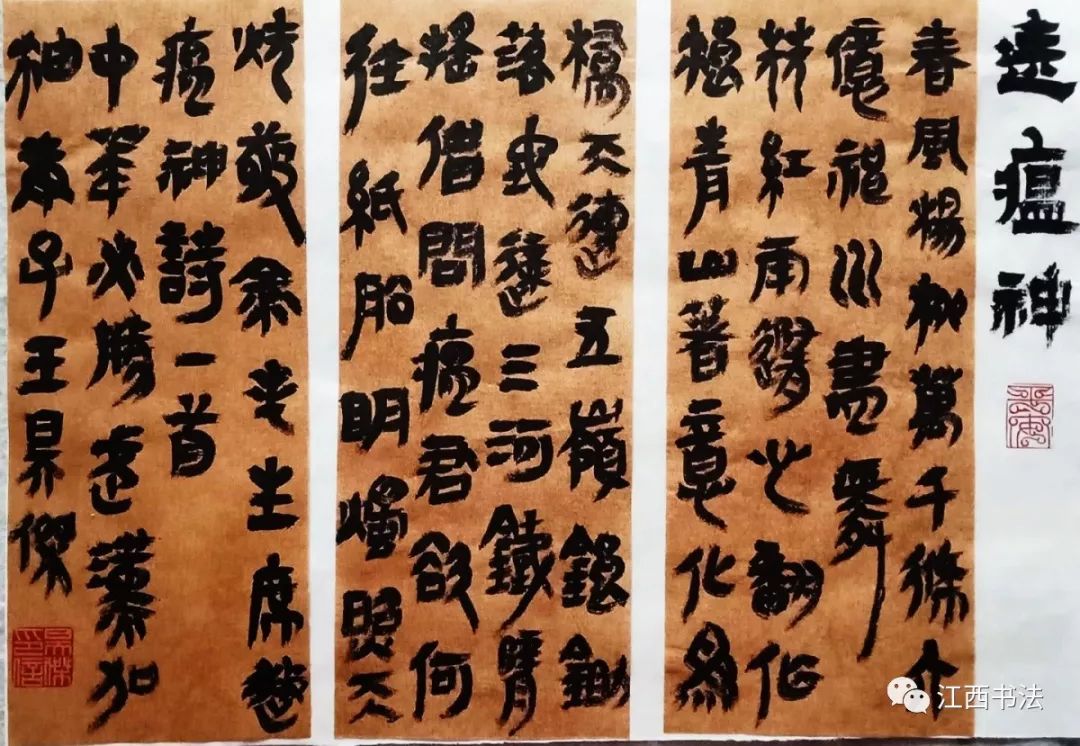 送瘟神
春風楊柳萬千條六
億神州盡舜
堯紅雨隨心翻作
浪青山着意化為
橋天連五嶺銀鋤
落地動三河鐵臂
搖借問瘟君欲何
往紙船明燭照天
燒敬錄毛主席送
瘟神詩一首
中華必勝武漢加
油庚子王昊傑
昊傑印信
江西书法